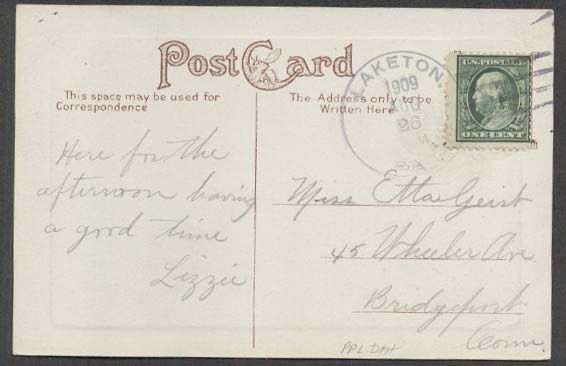 Post Card
This space may be used for
Correspondence
The Address only to be
Written Here
LAKETON
1909
AUG
26
U.S. POSTAGE
ONE CENT
Here for the
afternoon having
a good time
Lizzie
Miss Etta Geist
45 Wheeler Ave
Bridgeport
Conn.
PPL-DAH